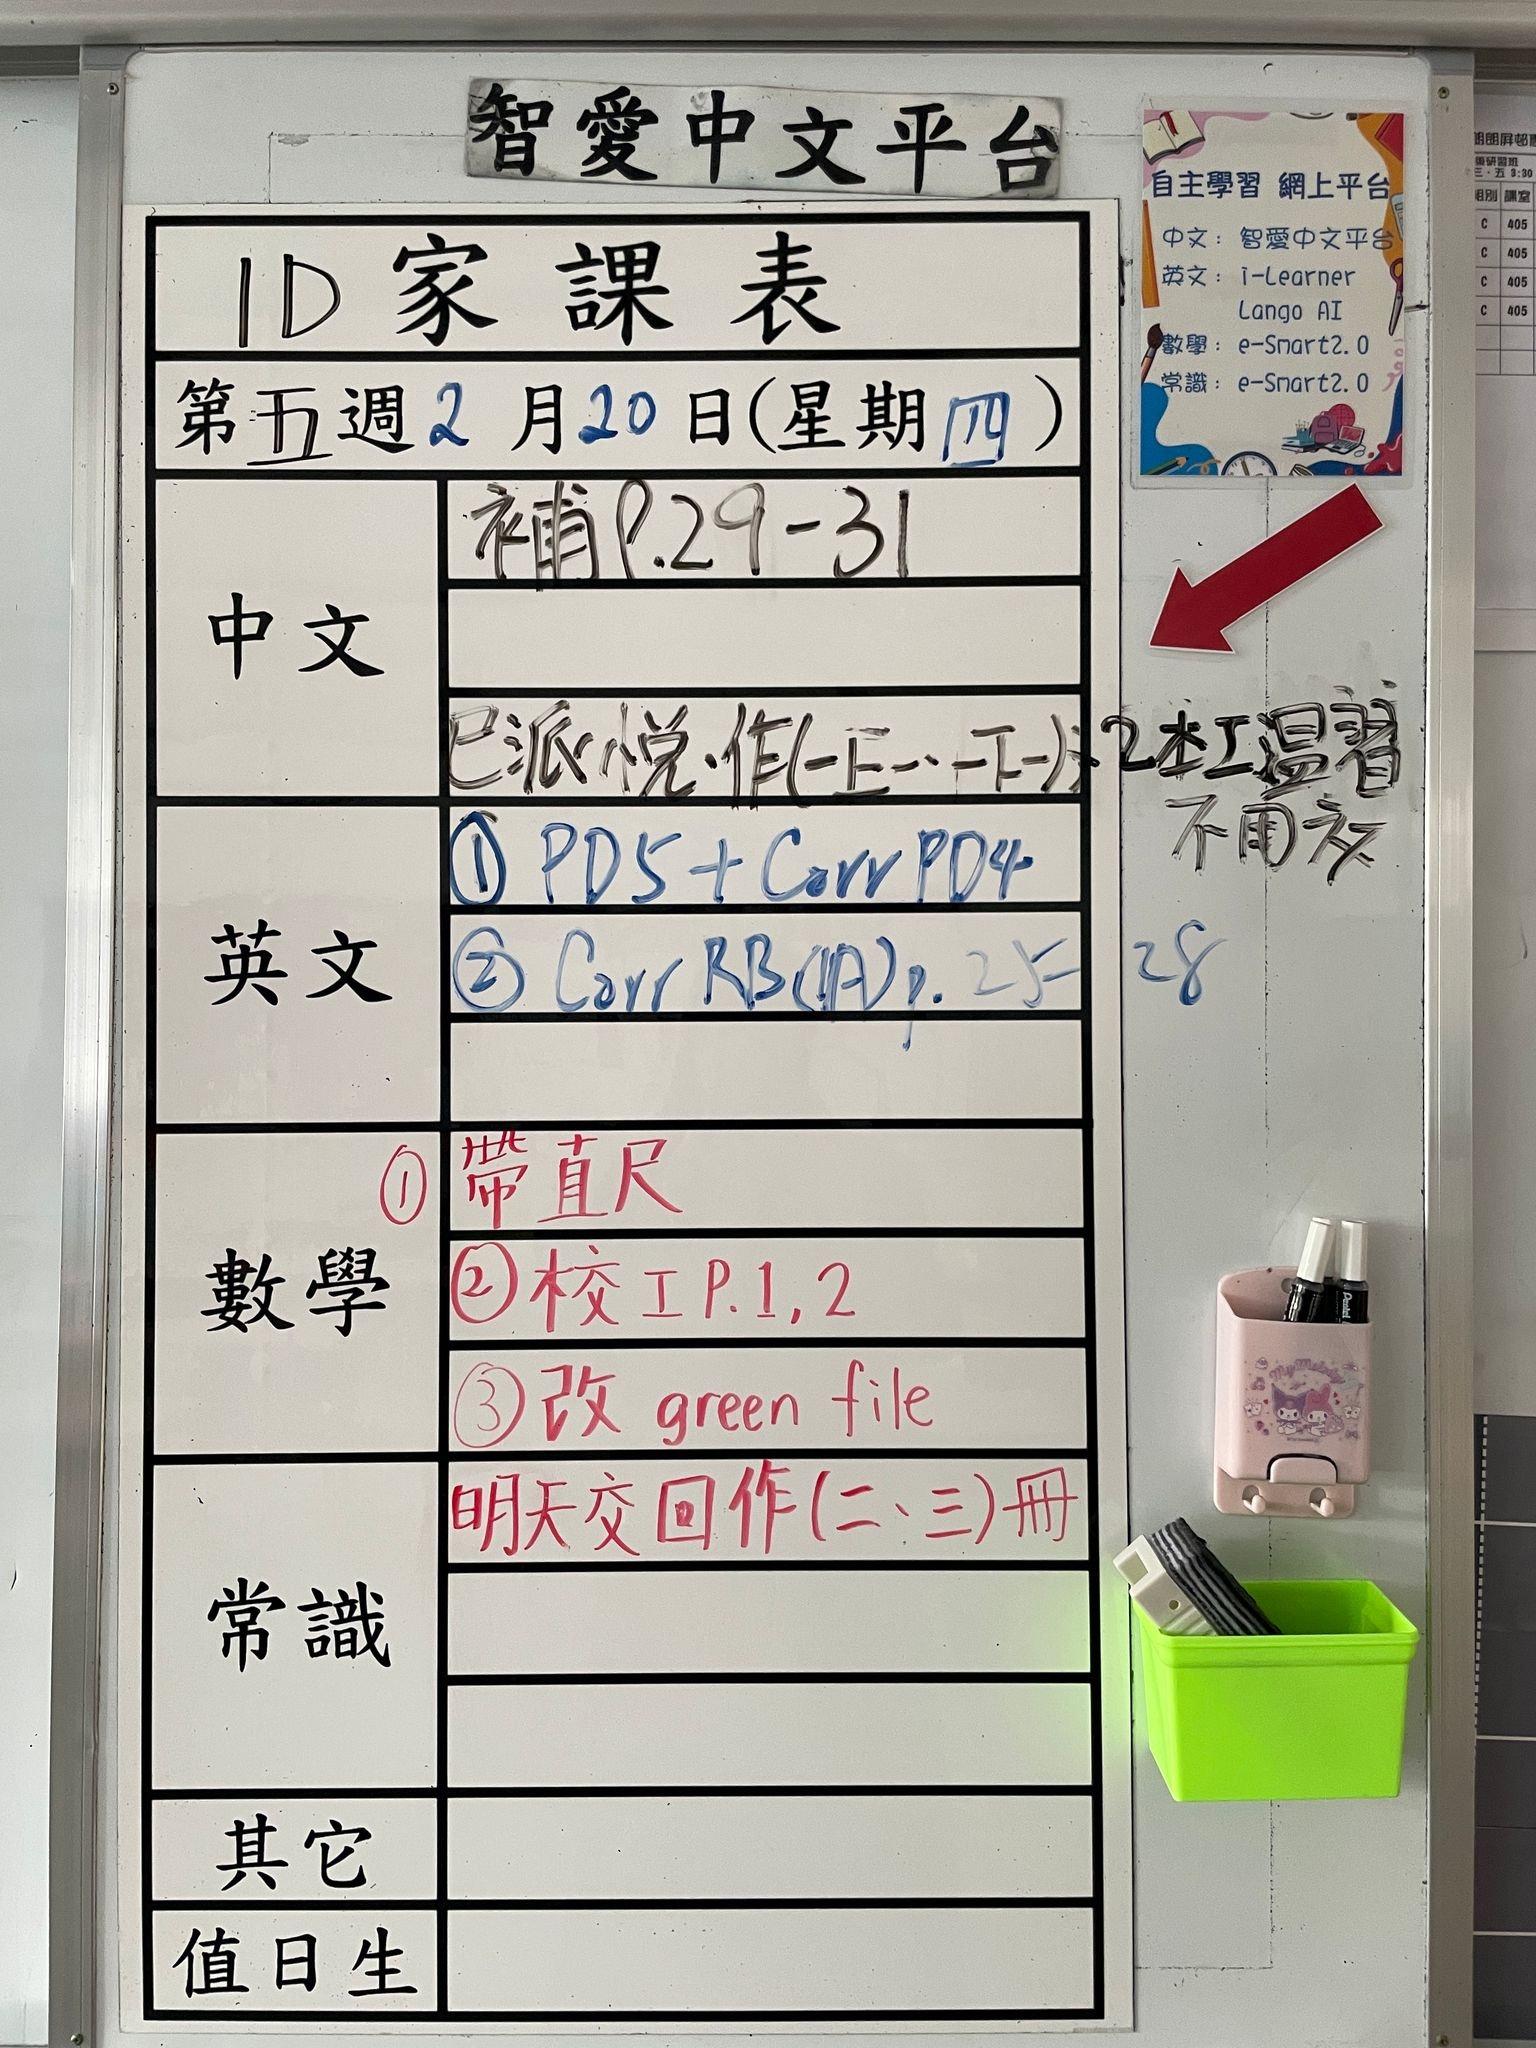 智愛中文平台
1D 家課表
第五週2月20日(星期四)
中文
補P.29-31
已派悅·作(一上一、一下一)、2本工溫習
不用交
英文
① PD5 + Corr PD4
② Corr RB(1A) p. 25-28
數學
① 帶直尺
② 校工P.1,2
③ 改 green file
常識
明天交回作(二、三)冊
其它
值日生
自主學習 網上平台
中文: 智愛中文平台
英文: i-Learner
Lango AI
數學: e-Smart2.0
常識: e-Smart2.0
三、五 3:30
組別 課室
C 405
C 405
C 405
C 405
My Melody
Pentel